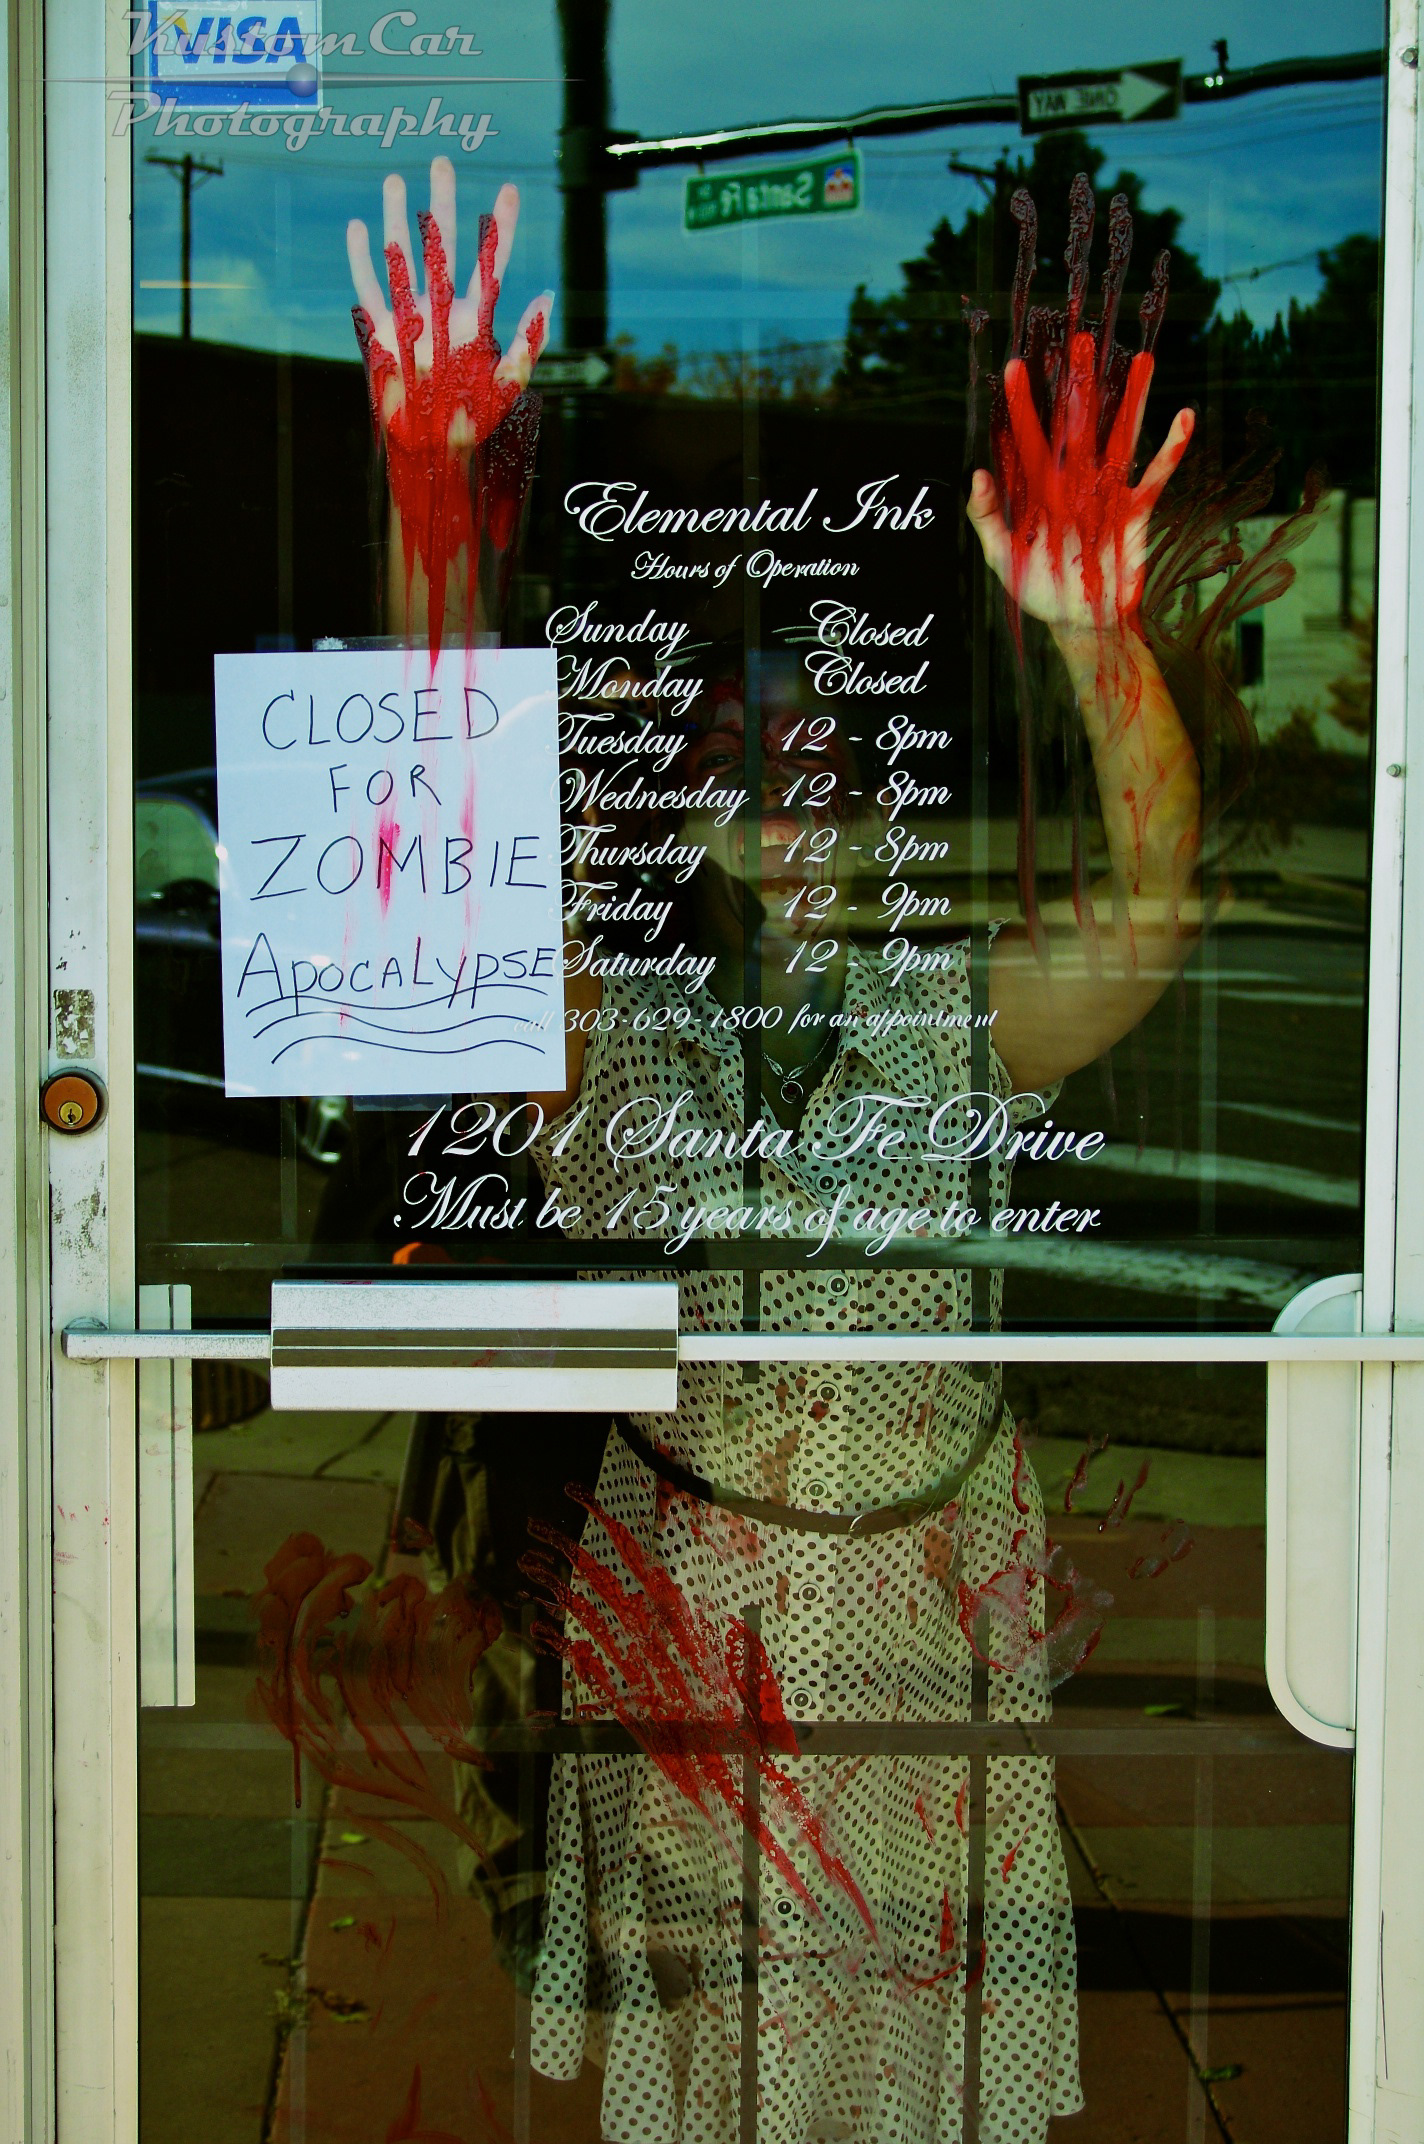 KustomCar
Photography
VISA
ONE WAY
Santa Fe
Elemental Ink
Hours of Operation
Sunday Closed
Monday Closed
Tuesday 12 - 8pm
Wednesday 12 - 8pm
Thursday 12 - 8pm
Friday 12 - 9pm
Saturday 12 - 9pm
call 303-629-1800 for an appointment
1201 Santa Fe Drive
Must be 15 years of age to enter
CLOSED
FOR
ZOMBIE
APOCALYPSE